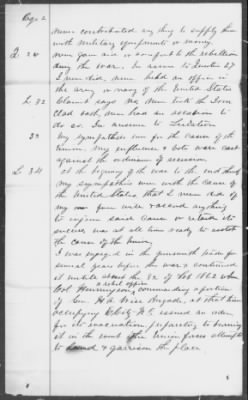 Page 2
never contributed any thing to supply them
with military equipments or money
never gave aid or comfort to the rebellion
during the war. In answer to Question 27
I never did, never held an office in
the army or navy of the United States
Claimant says No never took the Iron
Clad oath never had an occasion to
do so. In answer to
My sympathies were for the cause of the
Union. My influence & vote were cast
against the ordinance of secession
at the beginning of the war to the end
my sympathies were with the cause of
the United States that I ever did of
my own free will & accord any thing
to injure said cause or retard its
success was at all times ready to assist
the cause of the Union,
I was engaged in the gunsmith trade for
several years before the war & continued
at it until about the of Feb 1862 when
a rebel officer
Col Henningson, commanding a portion
of Gen H A Wise Brigade, at that time
occupying Eliz City N.C. issued an order
for its evacuation preparatory to burning
it in the event the Union forces attempted
to land & garrison the place